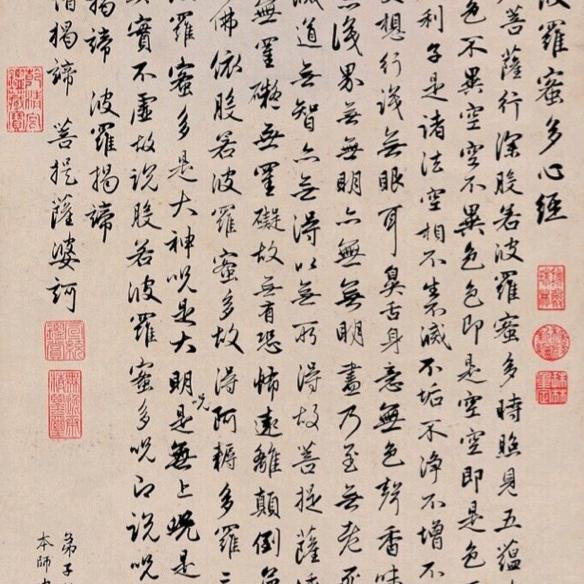 波羅蜜多心經
菩薩行深般若波羅蜜多時照見五蘊
色不異空空不異色色即是空空即是色
利子是諸法空相不生滅不垢不淨不增不
想行識無眼耳鼻舌身意無色聲香味
識界無無明亦無無明盡乃至無老死
滅道無智亦無得以無所得故菩提薩埵
無罣礙無罣礙故無有恐怖遠離顛倒
佛依般若波羅蜜多故得阿耨多羅三
羅蜜多是大神呪是大明呪是無上呪是
實不虛故說般若波羅蜜多呪即說呪
揭諦 波羅揭諦
僧揭諦 菩提薩婆訶
弟子
本師
乾清宮鑑藏寶